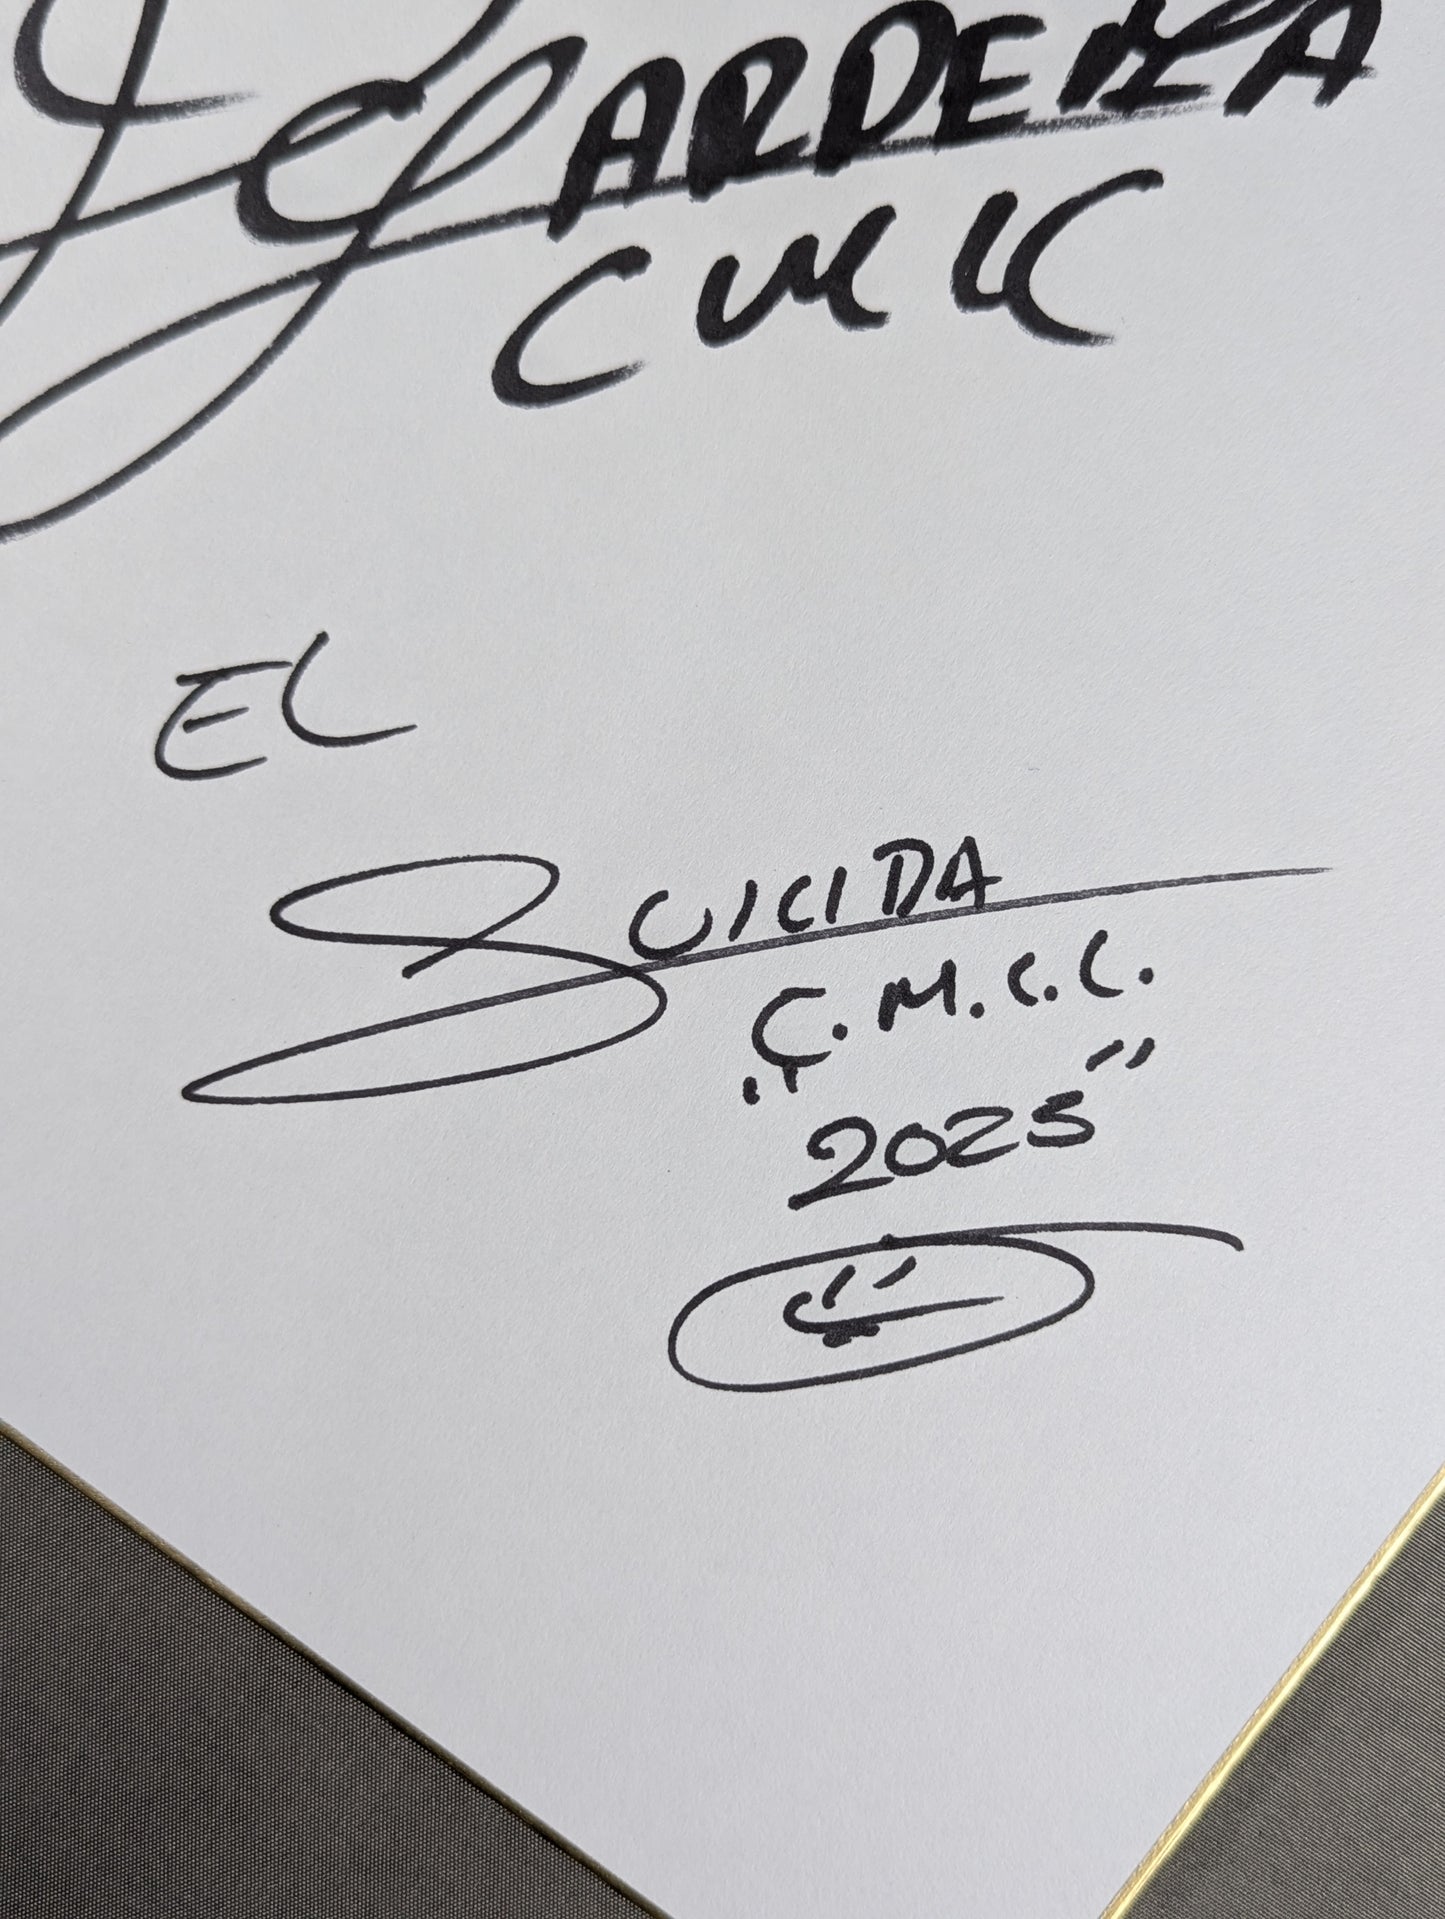 GARDENIA
CMLL
EL
SUICIDA
"C.M.L.L."
2025